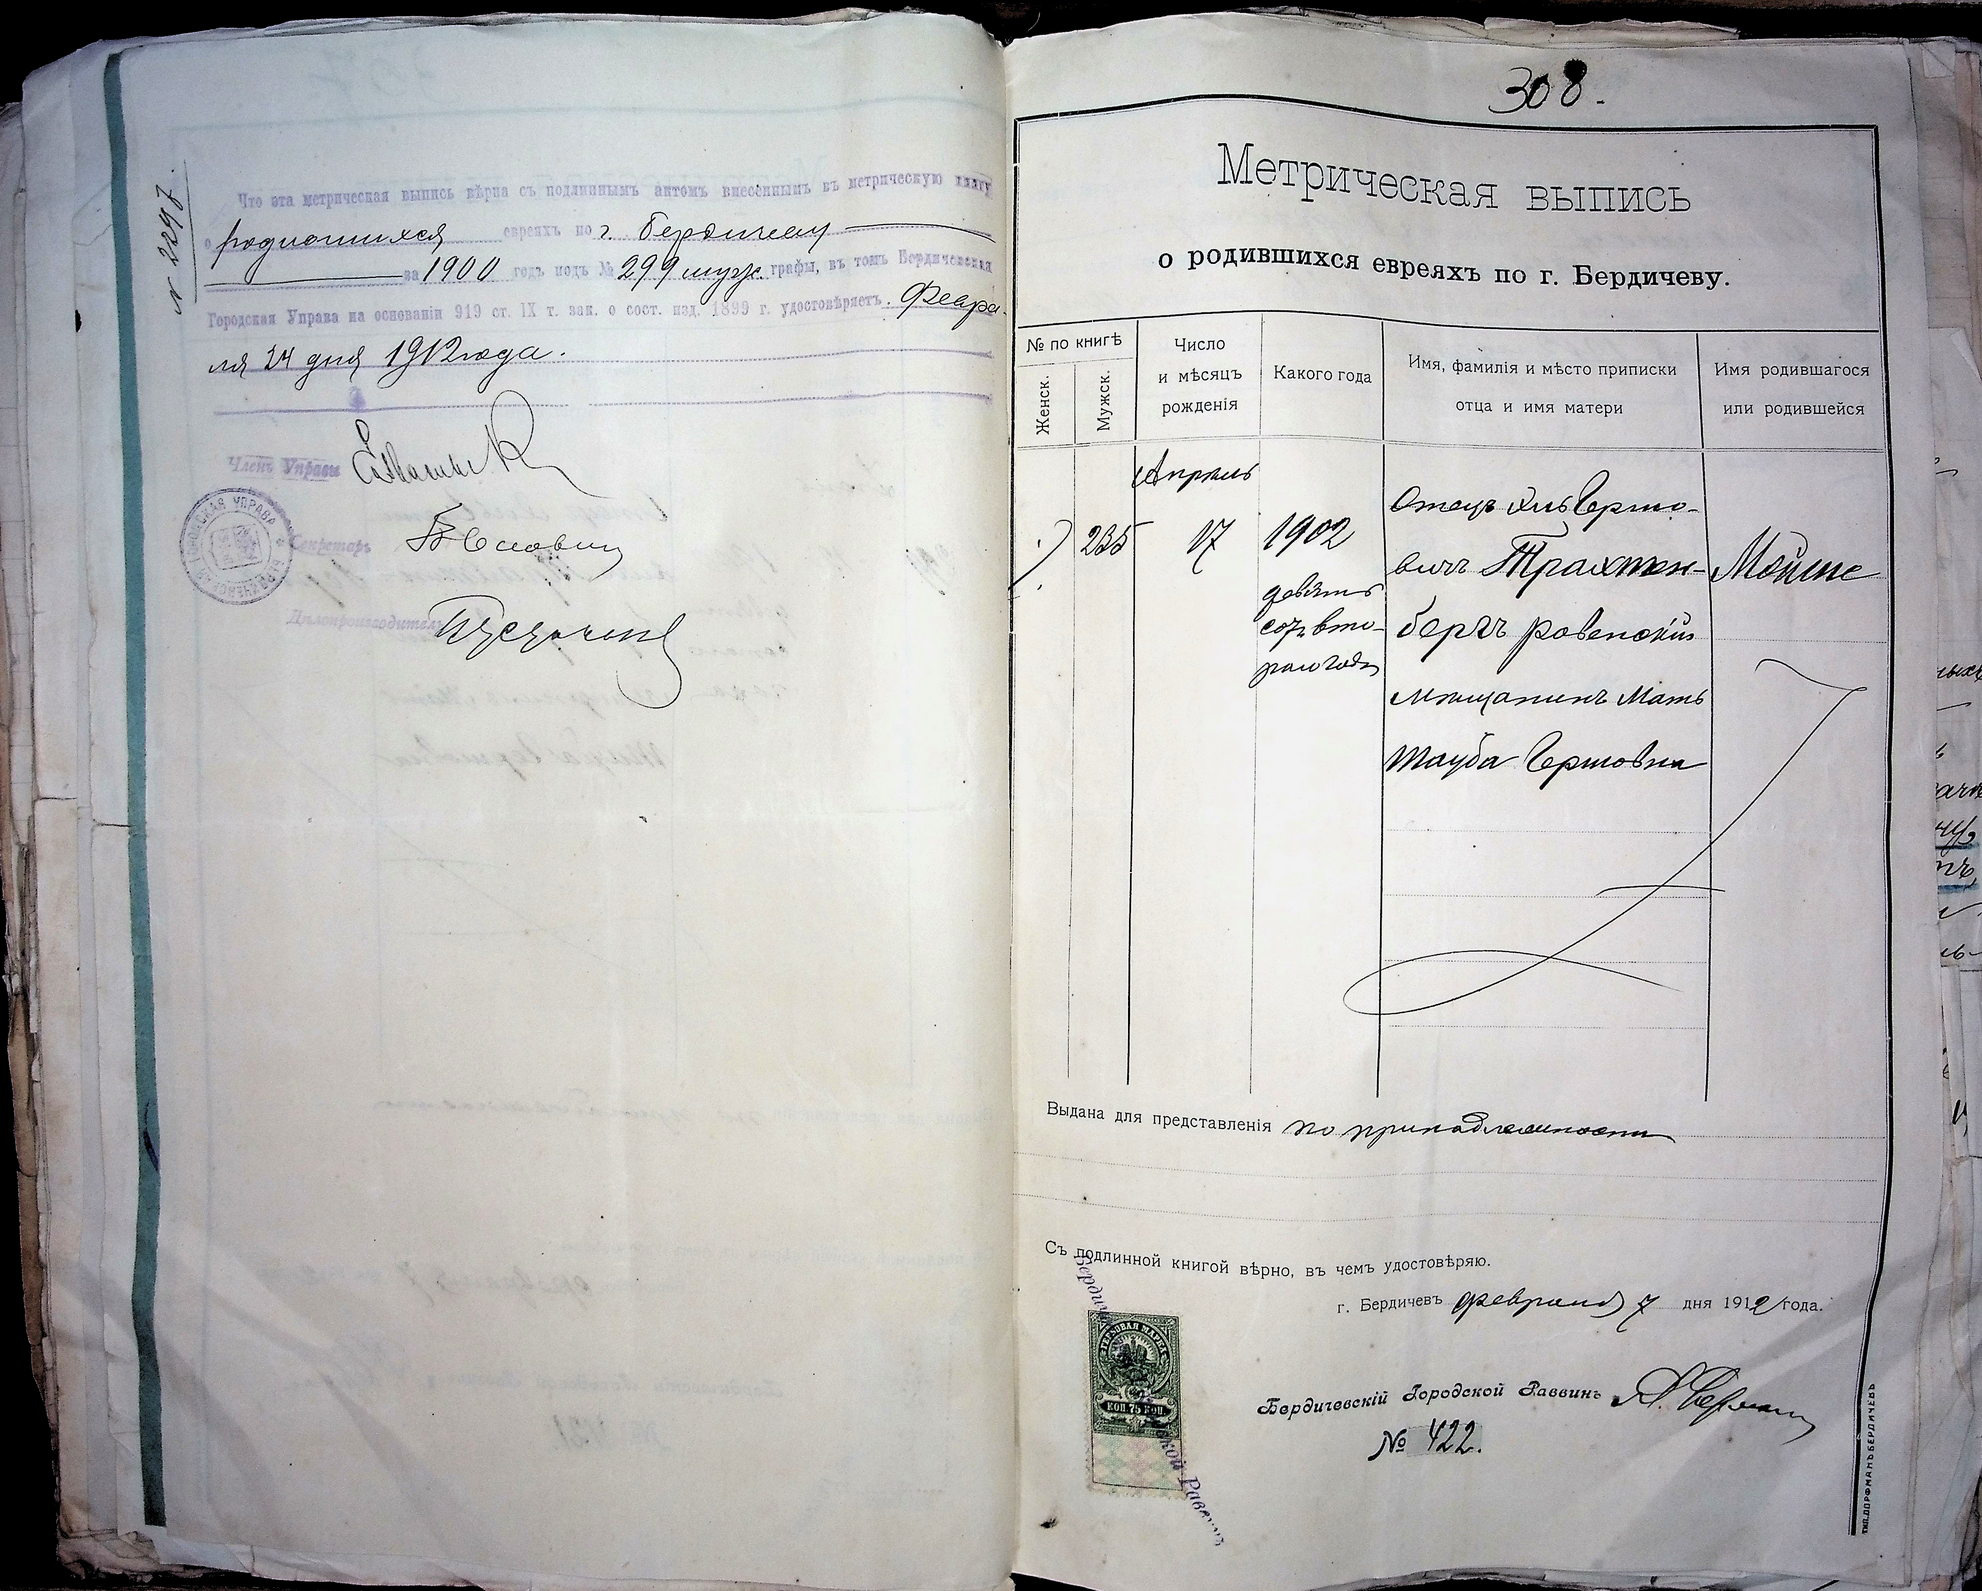 № 2297.
Что эта метрическая выпись вѣрна съ подлиннымъ актомъ внесеннымъ въ метрическую книгу
о родившихся евреяхъ по г. Бердичеву
за 1900 годъ подъ № 299 муж. графы, въ томъ Бердичевская
Городская Управа на основаніи 919 ст. IX т. зак. о сост. изд. 1899 г. удостовѣряетъ. Февра-
ля 24 дня 1912 года.
Членъ Управы
Секретарь
Дѣлопроизводитель
ГОРОДСКАЯ УПРАВА * БЕРДИЧЕВСКАЯ
308.
Метрическая выпись
о родившихся евреяхъ по г. Бердичеву.
№ по книгѣ
Женск.
Мужск.
Число
и мѣсяцъ
рожденія
Какого года
Имя, фамилія и мѣсто приписки
отца и имя матери
Имя родившагося
или родившейся
Апрѣль
17
235
1902
девять
сотъ вто-
рого года
Отецъ Хиль Гершо-
вичъ Трахтен-
бергъ ровенскій
мѣщанинъ Мать
Тауба Гершовна
Мойше
Выдана для представленія по принадлежности
Съ подлинной книгой вѣрно, въ чемъ удостовѣряю.
г. Бердичевъ февраля 7 дня 1912 года.
ГЕРБОВАЯ МАРКА
КОП 75 КОП
Бердичевскій Городской Раввинъ
№ 422.
ТИП. ДОРФМАНЪ БЕРДИЧЕВЪ